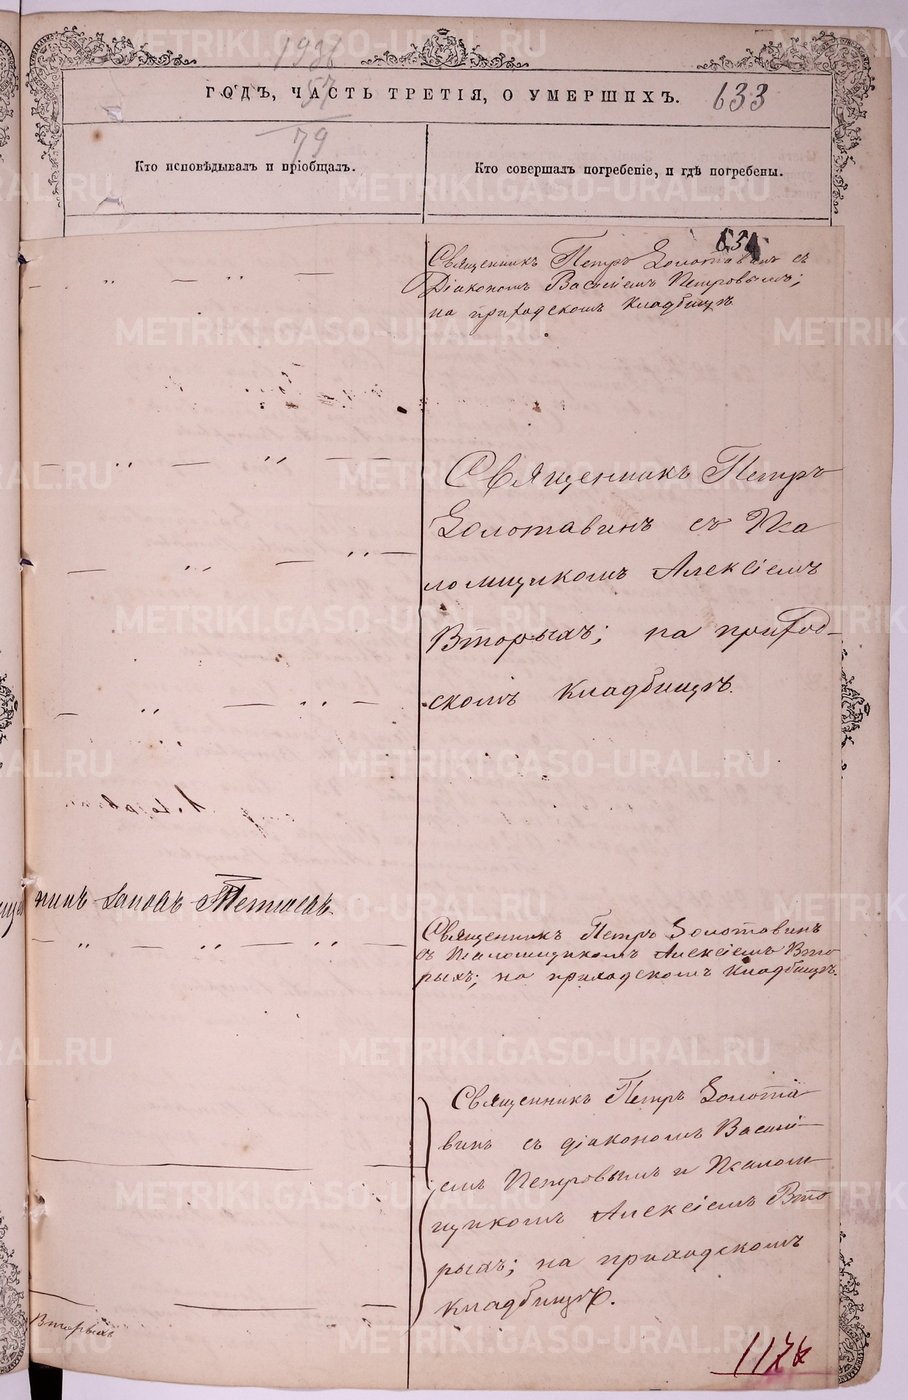 1936
57
79
ГОДЪ, ЧАСТЬ ТРЕТІЯ, О УМЕРШИХЪ. 633
Кто исповѣдывалъ и пріобщалъ.
Кто совершалъ погребеніе, и гдѣ погребены.
634
Священникъ Петръ Золотавинъ съ
Діакономъ Василіемъ Петровымъ;
на приходскомъ кладбищѣ
Священникъ Петръ
Золотавинъ съ Пса
ломщикомъ Алексіемъ
Вторыхъ; на приход-
скомъ кладбищѣ.
Священникъ Петръ Золотавинъ
съ Псаломщикомъ Алексіемъ Вто
рыхъ; на приходскомъ кладбищѣ.
Священникъ Петръ Золота
винъ съ діакономъ Васили-
емъ Петровымъ и Псалом-
щикомъ Алексіемъ Вто
рыхъ; на приходскомъ
кладбищѣ.
Вторыхъ
METRIKI.GASO-URAL.RU